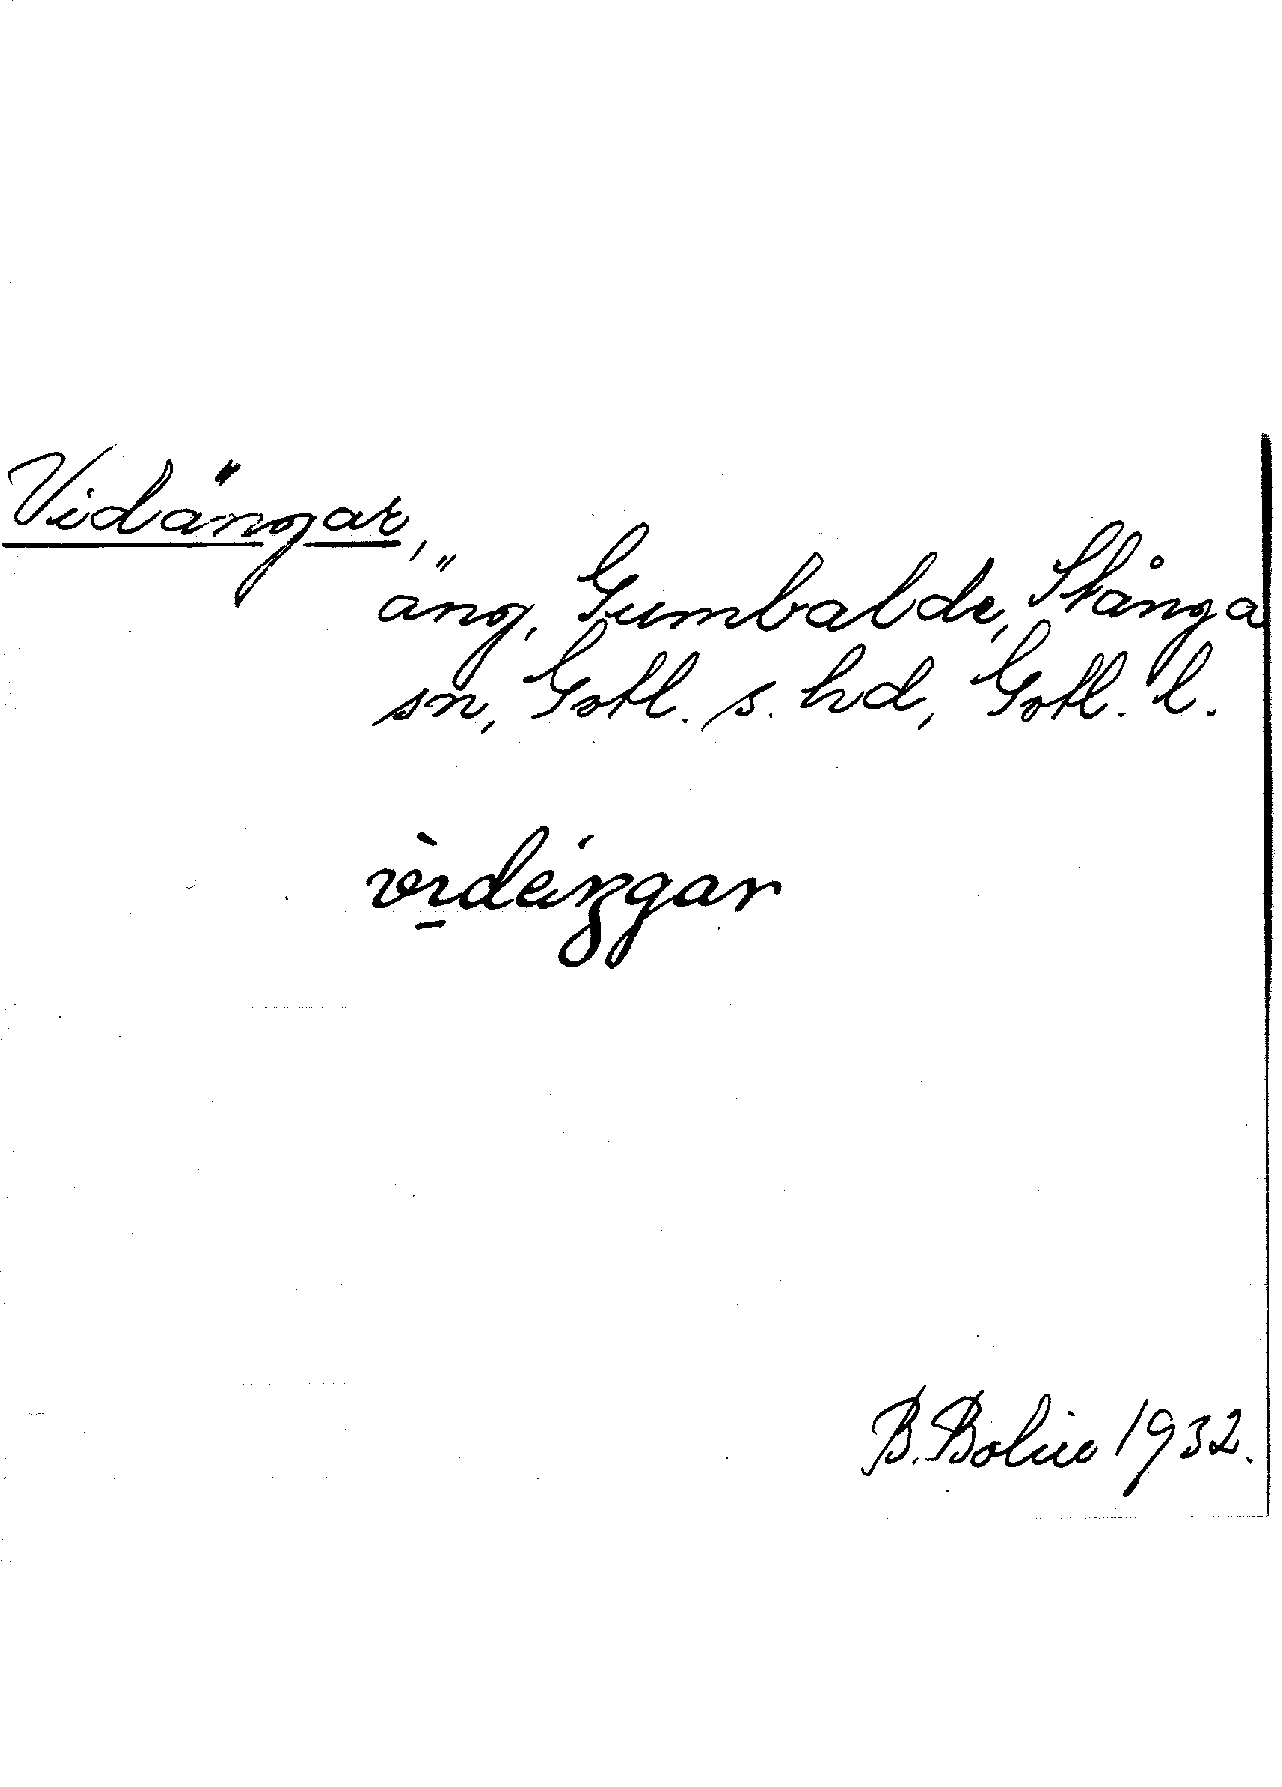 Vidängar,
äng, Gumbalde, Stånga
sn, Gotl. s. hd, Gotl. l.
B. Bolin 1932.